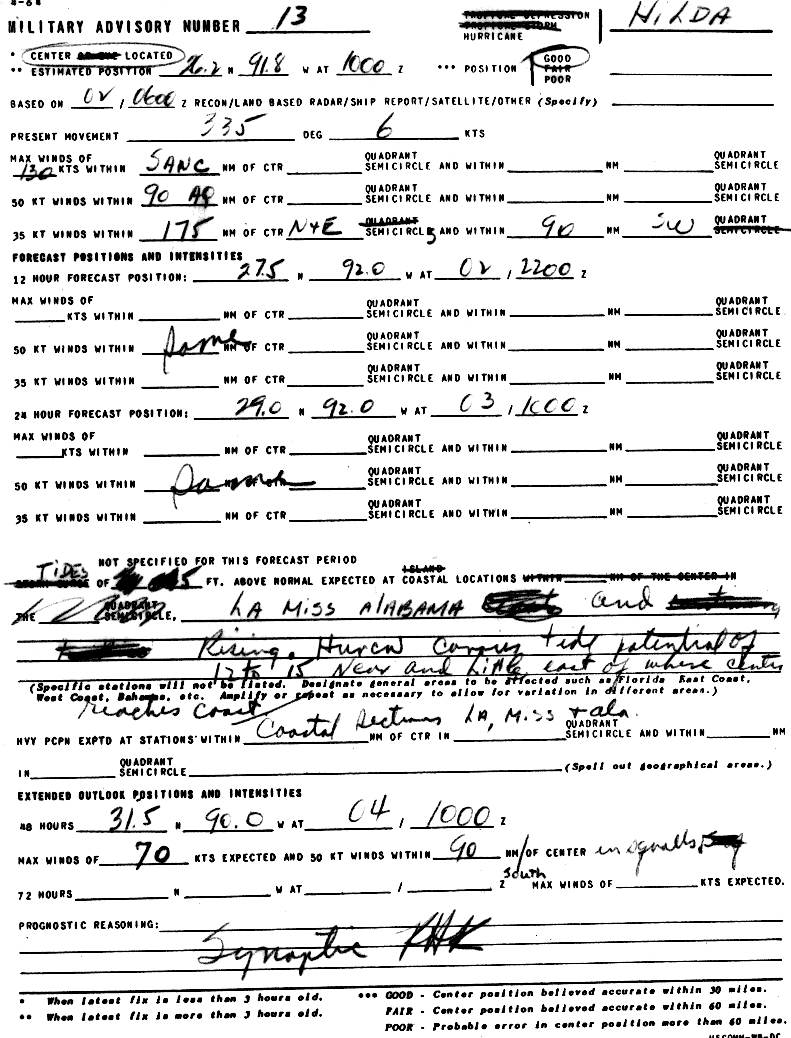 MILITARY ADVISORY NUMBER 13 HURRICANE HILDA
* CENTER LOCATED
** ESTIMATED POSITION 26.2 N 91.8 W AT 1000 Z *** POSITION GOOD FAIR POOR
BASED ON 02 / 0600 Z RECON/LAND BASED RADAR/SHIP REPORT/SATELLITE/OTHER (Specify)
PRESENT MOVEMENT 335 DEG 6 KTS
MAX WINDS OF 130 KTS WITHIN SANC NM OF CTR QUADRANT SEMICIRCLE AND WITHIN NM QUADRANT SEMICIRCLE
50 KT WINDS WITHIN 90 AQ NM OF CTR QUADRANT SEMICIRCLE AND WITHIN NM QUADRANT SEMICIRCLE
35 KT WINDS WITHIN 175 NM OF CTR N+E QUADRANT SEMICIRCLES AND WITHIN 90 NM SW QUADRANT SEMICIRCLE
FORECAST POSITIONS AND INTENSITIES
12 HOUR FORECAST POSITION: 27.5 N 92.0 W AT 02 / 2200 Z
MAX WINDS OF KTS WITHIN NM OF CTR QUADRANT SEMICIRCLE AND WITHIN NM QUADRANT SEMICIRCLE
50 KT WINDS WITHIN Same NM OF CTR QUADRANT SEMICIRCLE AND WITHIN NM QUADRANT SEMICIRCLE
35 KT WINDS WITHIN NM OF CTR QUADRANT SEMICIRCLE AND WITHIN NM QUADRANT SEMICIRCLE
24 HOUR FORECAST POSITION: 29.0 N 92.0 W AT 03 / 1000 Z
MAX WINDS OF KTS WITHIN NM OF CTR QUADRANT SEMICIRCLE AND WITHIN NM QUADRANT SEMICIRCLE
50 KT WINDS WITHIN NM OF CTR QUADRANT SEMICIRCLE AND WITHIN NM QUADRANT SEMICIRCLE
35 KT WINDS WITHIN NM OF CTR QUADRANT SEMICIRCLE AND WITHIN NM QUADRANT SEMICIRCLE
NOT SPECIFIED FOR THIS FORECAST PERIOD
TIDES OF 5 FT. ABOVE NORMAL EXPECTED AT COASTAL LOCATIONS WITHIN NM OF THE CENTER IN
THE QUADRANT SEMICIRCLE, LA MISS ALABAMA and
Rising. Hurcn carries tide potential of
12 to 15 Near and little east of where center
(Specific stations will not be listed. Designate general areas to be affected such as Florida East Coast,
West Coast, Bahamas, etc. Amplify or repeat as necessary to allow for variation in different areas.)
reaches coast
HVY PCPN EXPTD AT STATIONS WITHIN Coastal Sections LA, Miss + ala. NM OF CTR IN QUADRANT SEMICIRCLE AND WITHIN NM
IN QUADRANT SEMICIRCLE (Spell out geographical areas.)
EXTENDED OUTLOOK POSITIONS AND INTENSITIES
48 HOURS 31.5 N 90.0 W AT 04 / 1000 Z
MAX WINDS OF 70 KTS EXPECTED AND 50 KT WINDS WITHIN 90 NM/OF CENTER in squalls
south
72 HOURS N W AT / Z MAX WINDS OF KTS EXPECTED.
PROGNOSTIC REASONING:
Synoptic
* When latest fix is less than 3 hours old. *** GOOD - Center position believed accurate within 30 miles.
** When latest fix is more than 3 hours old. FAIR - Center position believed accurate within 60 miles.
POOR - Probable error in center position more than 60 miles.
USCOMM-WB-DC